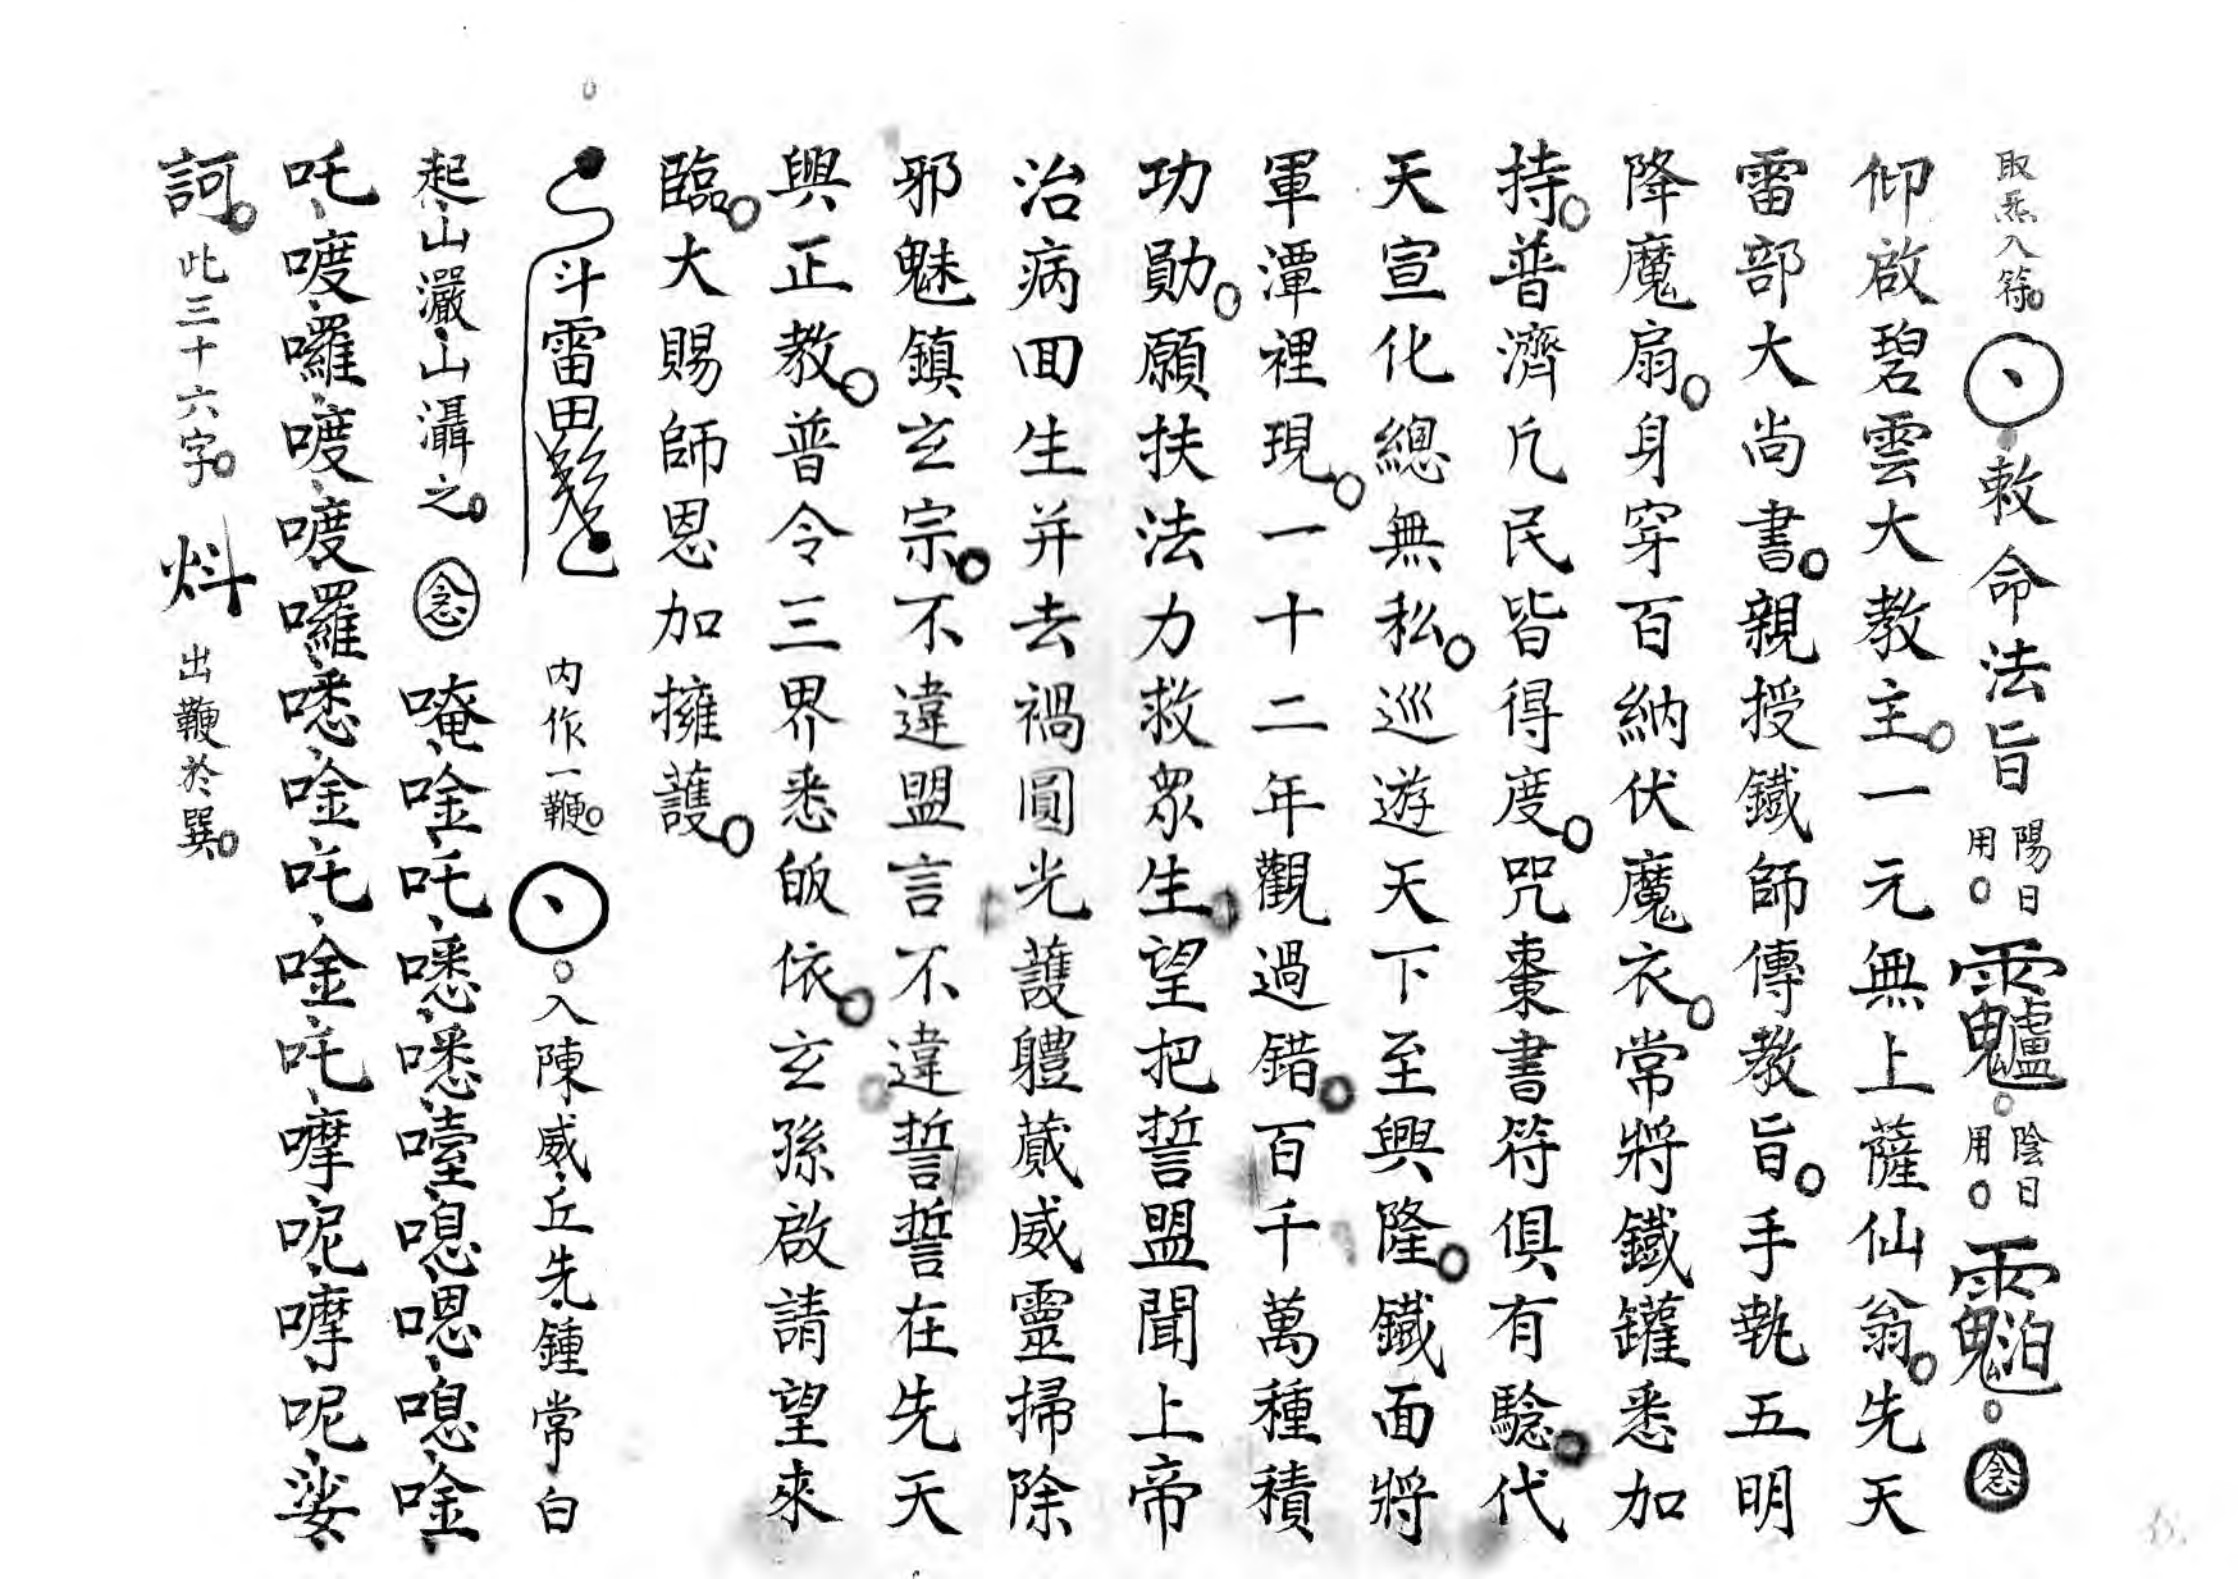 取炁入符。敕命法旨陽日用。陰日用。念
仰啟碧雲大教主。一元無上薩仙翁。先天
雷部大尚書。親授鐵師傳教旨。手執五明
降魔扇。身穿百納伏魔衣。常將鐵罐悉加
持。普濟凢民皆得度。咒棗書符俱有驗。代
天宣化總無私。巡遊天下至興隆。鐵面將
軍潭裡現。一十二年觀過錯。百千萬種積
功勛。願扶法力救眾生。望把誓盟聞上帝
治病回生并去禍圓光護軆蕆威靈掃除
邪魅鎮玄宗。不違盟言不違誓誓在先天
興正教。普令三界悉皈依。玄孫啟請望來
臨。大賜師恩加擁護。
斗雷田 内作一鞭。入陳威丘先鍾常白
起山灑山灄之。念唵唫吒㗭㗭㘆嘷嗯嘷唫
吒喥囉喥喥囉㗭唫吒唫吒嚤呢嚤呢娑
訶。此三十六字。炓出鞭於巽。